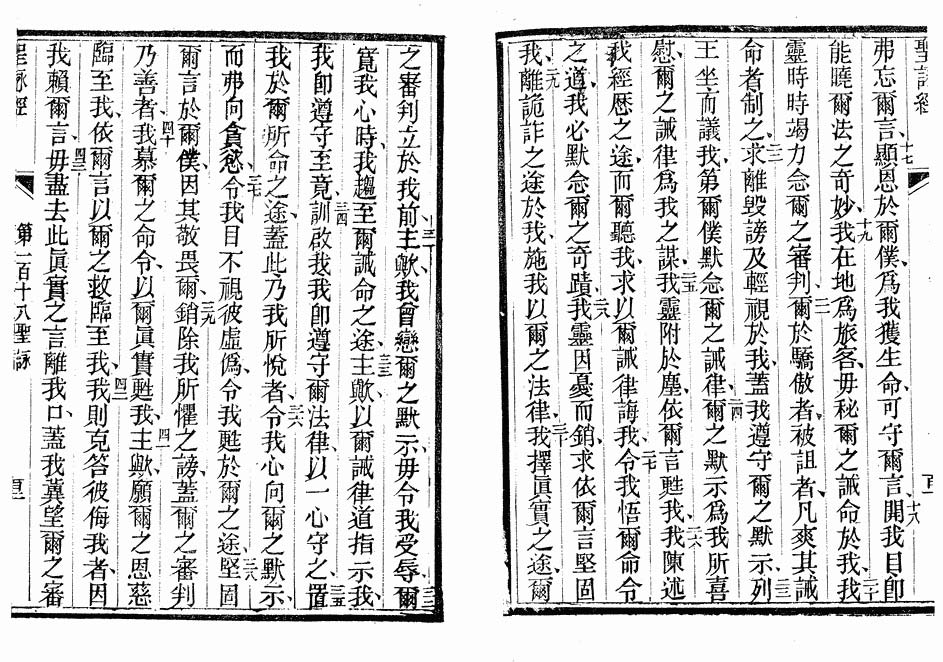 聖詠經
弗忘爾言、十七顯恩於爾僕、爲我獲生命、可守爾言、十八開我目、卽
能曉爾法之奇妙、十九我在地爲旅客、毋秘爾之誡命於我、二十我
靈時時竭力念爾之審判、二一爾於驕傲者、被詛者、凡爽其誡
命者制之、二二求離毀謗及輕視於我、蓋我遵守爾之默示、二三列
王坐而議我、第爾僕默念爾之誡律、二四爾之默示爲我所喜
慰、爾之誡律爲我之謀、二五我靈附於塵、依爾言甦我、二六我陳述
我經歷之途、而爾聽我、求以爾誡律誨我、二七令我悟爾命令
之道、我必默念爾之奇蹟、二八我靈因憂而銷、求依爾言堅固
我、二九離詭詐之途於我、施我以爾之法律、三十我擇眞實之途、爾
之審判立於我前、三一主歟、我曾戀爾之默示、毋令我受辱、三二爾
寬我心時、我趨至爾誡命之途、三三主歟、以爾誡律道指示我、
我卽遵守至竟、三四訓啟我、我卽遵守爾法律、以一心守之、三五置
我於爾所命之途、蓋此乃我所悅者、三六令我心向爾之默示、
而弗向貪慾、三七令我目不視彼虛僞、令我甦於爾之途、三八堅固
爾言於爾僕、因其敬畏爾、三九銷除我所懼之謗、蓋爾之審判
乃善者、四十我慕爾之命令、以爾眞實甦我、四一主歟、願爾之恩慈
臨至我、依爾言以爾之救臨至我、四二我則克答彼侮我者、因
我賴爾言、四三毋盡去此眞實之言離我口、蓋我冀望爾之審
聖詠經
第一百十八聖詠